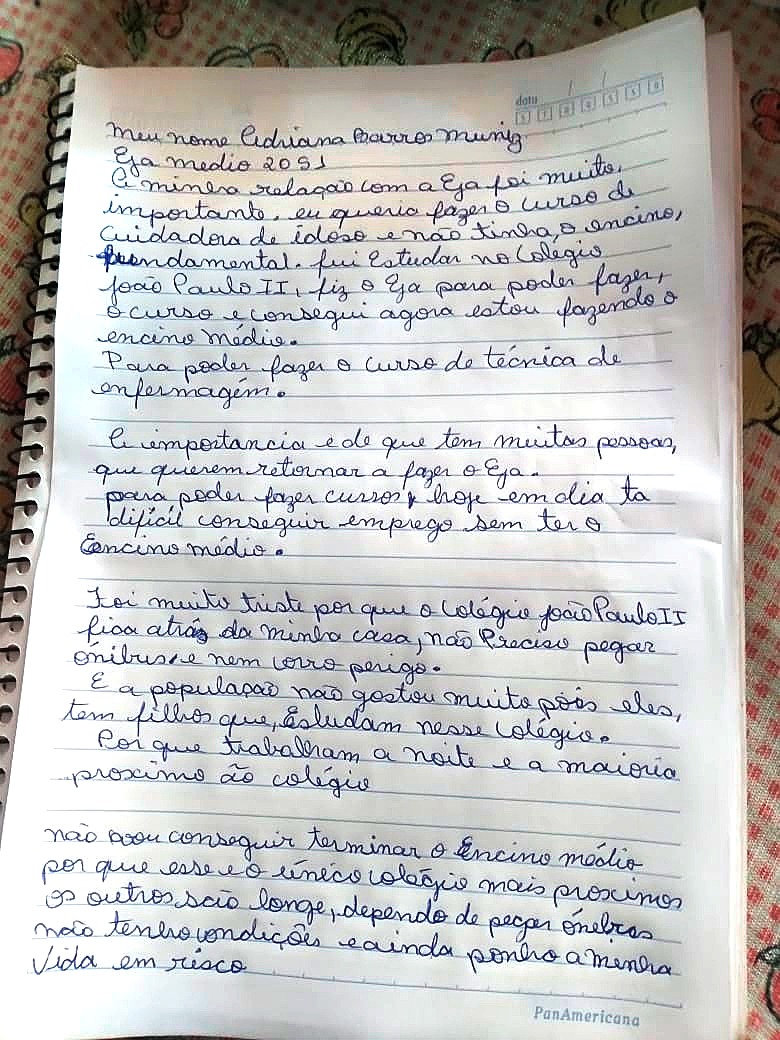 data / /
S T Q Q S S D
meu nome Adriana Barros Muniz
Eja medio 20 S1
A minha relação com a Eja foi muito,
importante, eu queria fazer o curso de
Cuidadora de idoso e não tinha, o encino,
fundamental. fui Estudar no Colégio
João Paulo II, fiz o Eja para poder fazer,
o curso e consegui agora estou fazendo o
encino médio.
Para poder fazer o curso de técnica de
enfermagém.
A importancia e de que tem muitas pessoas,
que querem retornar a fazer o Eja.
para poder fazer cursos, hoje em dia ta
dificíl conseguir emprego sem ter o
Encino médio.
Foi muito triste por que o Colégio João Paulo II
fica atrás da minha casa, não Preciso pegar
ônibus, e nem corro perigo.
E a população não gostou muito pois eles,
tem filhos que, Estudam nesse Colégio.
Por que trabalham a noite e a maioria
proximo ão colégio
não vou conseguir terminar o Encino médio
por que esse e o único colégio mais proximos
os outros são longe, dependo de pegar ônebus
não tenho condições e ainda ponho a menha
Vida em risco
PanAmericana